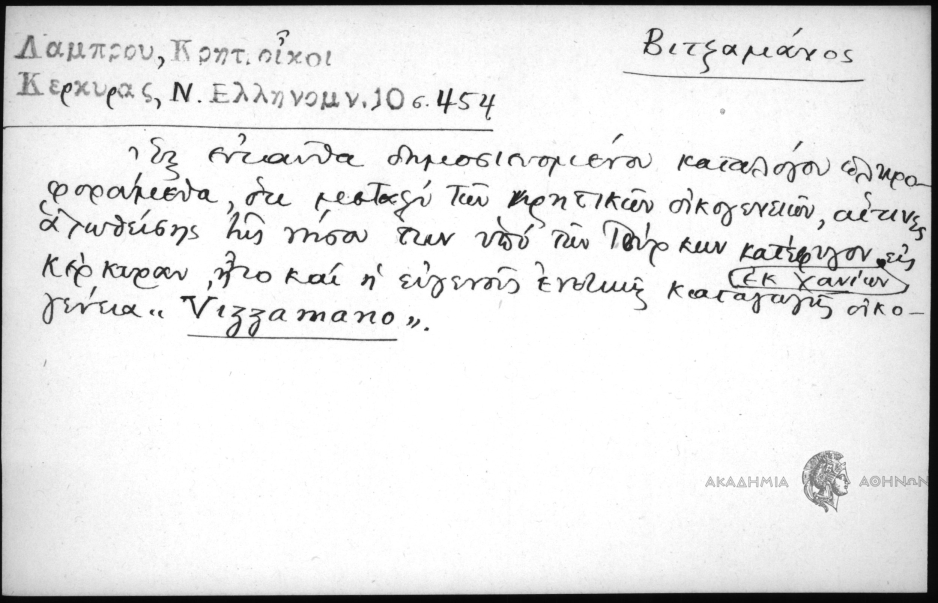 Λαμπρου, Κρητ. οἶκοι
Κερκυρας, Ν. Ελληνομν. 10 σ. 454
Βιτζαμάνος
Ἐξ ἐνταῦθα δημοσιευομένου καταλόγου πληρο-
φορούμεθα, ὅτι μεταξύ τῶν κρητικῶν οἰκογενειῶν, αἵτινες
ἁλωθείσης τῆς νήσου των ὑπό τῶν Τούρκων κατέφυγον εἰς
Κέρκυραν, ἦτο καί ἡ εὐγενής ἑνετικῆς καταγωγῆς ἐκ Χανίων οἰκο-
γένεια « Vizzamano ».
ΑΚΑΔΗΜΙΑ ΑΘΗΝΩΝ